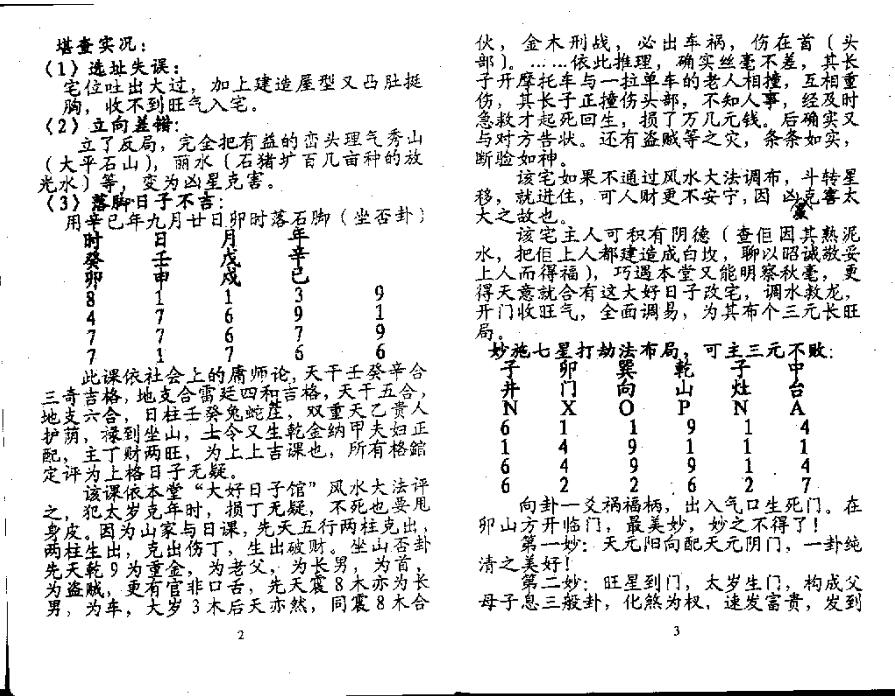 堪查实况：
（1）选址失误：
宅位吐出大过，加上建造屋型又凸肚挺
胸，收不到旺气入宅。
（2）立向差错：
立了反局，完全把有益的峦头理气秀山
（大平石山），丽水（石猪圹百几亩种的放
光水）等，变为凶星克害。
（3）落脚日子不吉：
用辛巳年九月廿日卯时落石脚（坐否卦）
时 日 月 年
癸 壬 戊 辛
卯 申 戌 巳
8 1 1 3 9
4 7 6 9 1
7 7 6 7 9
7 1 7 6 6
此课依社会上的庸师论，天干壬癸辛合
三奇吉格，地支合雷廷四和吉格，天干五合，
地支六合，日柱壬癸兔蛇茳，双重天乙贵人
护荫，禄到坐山，士令又生乾金纳甲夫妇正
配，主丁财两旺，为上上吉课也，所有格舘
定评为上格日子无疑。
该课依本堂“大好日子馆”风水大法评
之，犯太岁克年时，损丁无疑，不死也要甩
身皮。因为山家与日课，先天五行两柱克出，
两柱生出，克出伤丁，生出破财。坐山否卦
先天乾9为重金，为老父，为长男，为首，
为盗贼，更有官非口舌，先天震8木亦为长
男，为车，大岁3木后天亦然，同震8木合
2
伙，金木刑战，必出车祸，伤在首（头
部）。……依此推理，确实丝毫不差，其长
子开摩托车与一拉单车的老人相撞，互相重
伤，其长子正撞伤头部，不知人事，经及时
急救才起死回生，损了万几元钱。后确实又
与对方告状。还有盗贼等之灾，条条如实，
断验如神。
该宅如果不通过风水大法调布，斗转星
移，就进住，可人财更不安宁，因凶克害太
大之故也。
该宅主人可积有阴德（查佢因其熟泥
水，把佢上人都建造成白坟，聊以昭诚敬妥
上人而得福），巧遇本堂又能明察秋毫，更
得天意就合有这大好日子改宅，调水救龙，
开门收旺气，全面调易，为其布个三元长旺
局。
妙施七星打劫法布局，可主三元不败：
子 卯 巽 乾 子 中
井 门 向 山 灶 台
N X O P N A
6 1 1 9 1 4
1 4 9 1 1 1
6 4 9 9 1 4
6 2 2 6 2 7
向卦一爻祸福柄，出入气口生死门。在
卯山方开临门，最美妙，妙之不得了！
第一妙：天元阳向配天元阴门，一卦纯
清之美好！
第二妙：旺星到门，太岁生门，构成父
母子息三般卦，化煞为权，速发富贵，发到
3